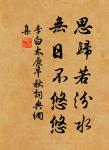 思歸若汾水
無日不悠悠
李白太原早秋詞典網
集